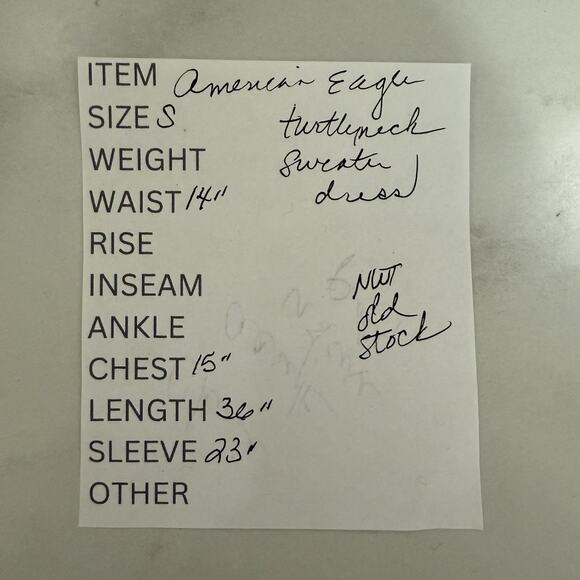 ITEM American Eagle
SIZE S turtleneck
WEIGHT sweater
WAIST 14" dress
RISE
INSEAM NWT
ANKLE old
CHEST 15" stock
LENGTH 36"
SLEEVE 23"
OTHER